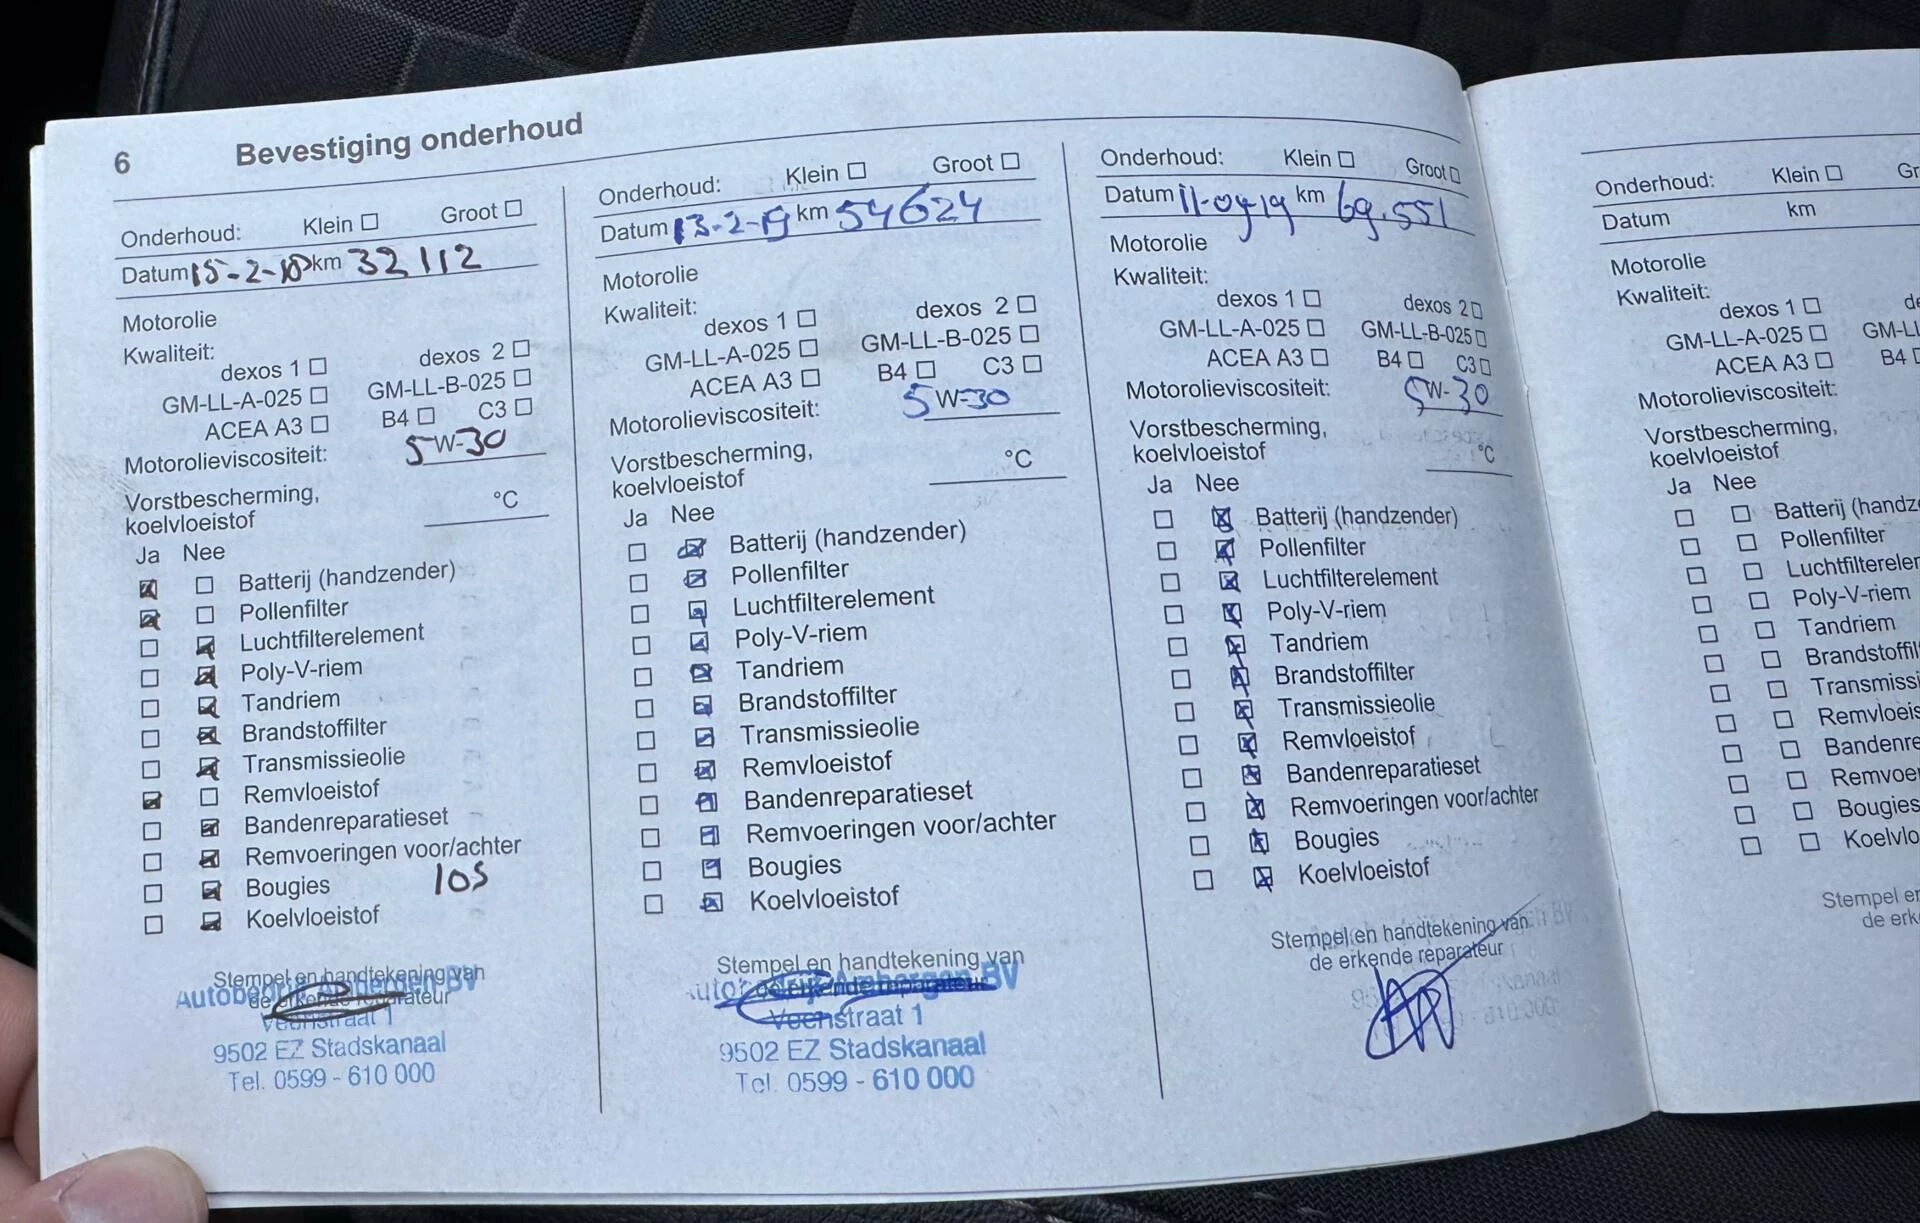 6 Bevestiging onderhoud
Onderhoud: Klein Groot
Datum 15-2-18 km 32112
Motorolie
Kwaliteit:
dexos 1 dexos 2
GM-LL-A-025 GM-LL-B-025
ACEA A3 B4 C3
Motorolieviscositeit: 5W-30
Vorstbescherming,
koelvloeistof °C
Ja Nee
Batterij (handzender)
Pollenfilter
Luchtfilterelement
Poly-V-riem
Tandriem
Brandstoffilter
Transmissieolie
Remvloeistof
Bandenreparatieset
Remvoeringen voor/achter
Bougies
Koelvloeistof
Stempel en handtekening van
de erkende reparateur
Autobedrijf Ambergen BV
Veenstraat 1
9502 EZ Stadskanaal
Tel. 0599 - 610 000
Onderhoud: Klein Groot
Datum 13-2-19 km 54624
Motorolie
Kwaliteit:
dexos 1 dexos 2
GM-LL-A-025 GM-LL-B-025
ACEA A3 B4 C3
Motorolieviscositeit: 5W-30
Vorstbescherming,
koelvloeistof °C
Ja Nee
Batterij (handzender)
Pollenfilter
Luchtfilterelement
Poly-V-riem
Tandriem
Brandstoffilter
Transmissieolie
Remvloeistof
Bandenreparatieset
Remvoeringen voor/achter
Bougies
Koelvloeistof
Stempel en handtekening van
de erkende reparateur
Autobedrijf Ambergen BV
Veenstraat 1
9502 EZ Stadskanaal
Tel. 0599 - 610 000
Onderhoud: Klein Groot
Datum 11-09-19 km 69.551
Motorolie
Kwaliteit:
dexos 1 dexos 2
GM-LL-A-025 GM-LL-B-025
ACEA A3 B4 C3
Motorolieviscositeit: 5W-30
Vorstbescherming,
koelvloeistof °C
Ja Nee
Batterij (handzender)
Pollenfilter
Luchtfilterelement
Poly-V-riem
Tandriem
Brandstoffilter
Transmissieolie
Remvloeistof
Bandenreparatieset
Remvoeringen voor/achter
Bougies
Koelvloeistof
Stempel en handtekening van
de erkende reparateur
Onderhoud: Klein Gr
Datum km
Motorolie
Kwaliteit:
dexos 1 de
GM-LL-A-025 GM-LL
ACEA A3 B4
Motorolieviscositeit:
Vorstbescherming,
koelvloeistof
Ja Nee
Batterij (handze
Pollenfilter
Luchtfilterelem
Poly-V-riem
Tandriem
Brandstoffil
Transmissi
Remvloeis
Bandenre
Remvoe
Bougies
Koelvlo
Stempel en
de erk